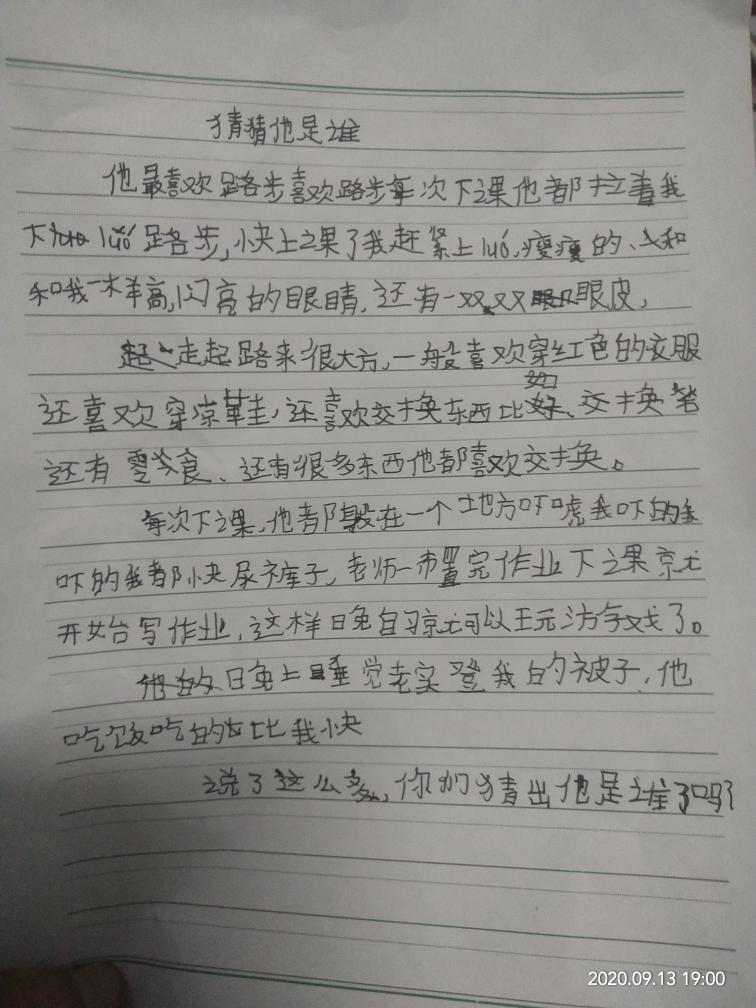 猜猜他是谁
他最喜欢路步喜欢路步每次下课他都拉着我
下 luó 路步,快上课了我赶紧上 luó,瘦瘦的、
和我一样高,闪亮的眼睛,还有一双双眼皮,
走起路来很大方,一般喜欢穿红色的衣服
还喜欢穿凉鞋,还喜欢交换东西比如、交换笔
还有零食、还有很多东西他都喜欢交换。
每次下课,他都躲在一个地方吓唬我吓的我
吓的我都快尿裤子,老师一布置完作业下课就
开始写作业,这样晚自习就可以玩游戏了。
他晚上睡觉老实登我的被子,他
吃饭吃的比我快
说了这么多,你们猜出他是谁了吗
2020.09.13 19:00